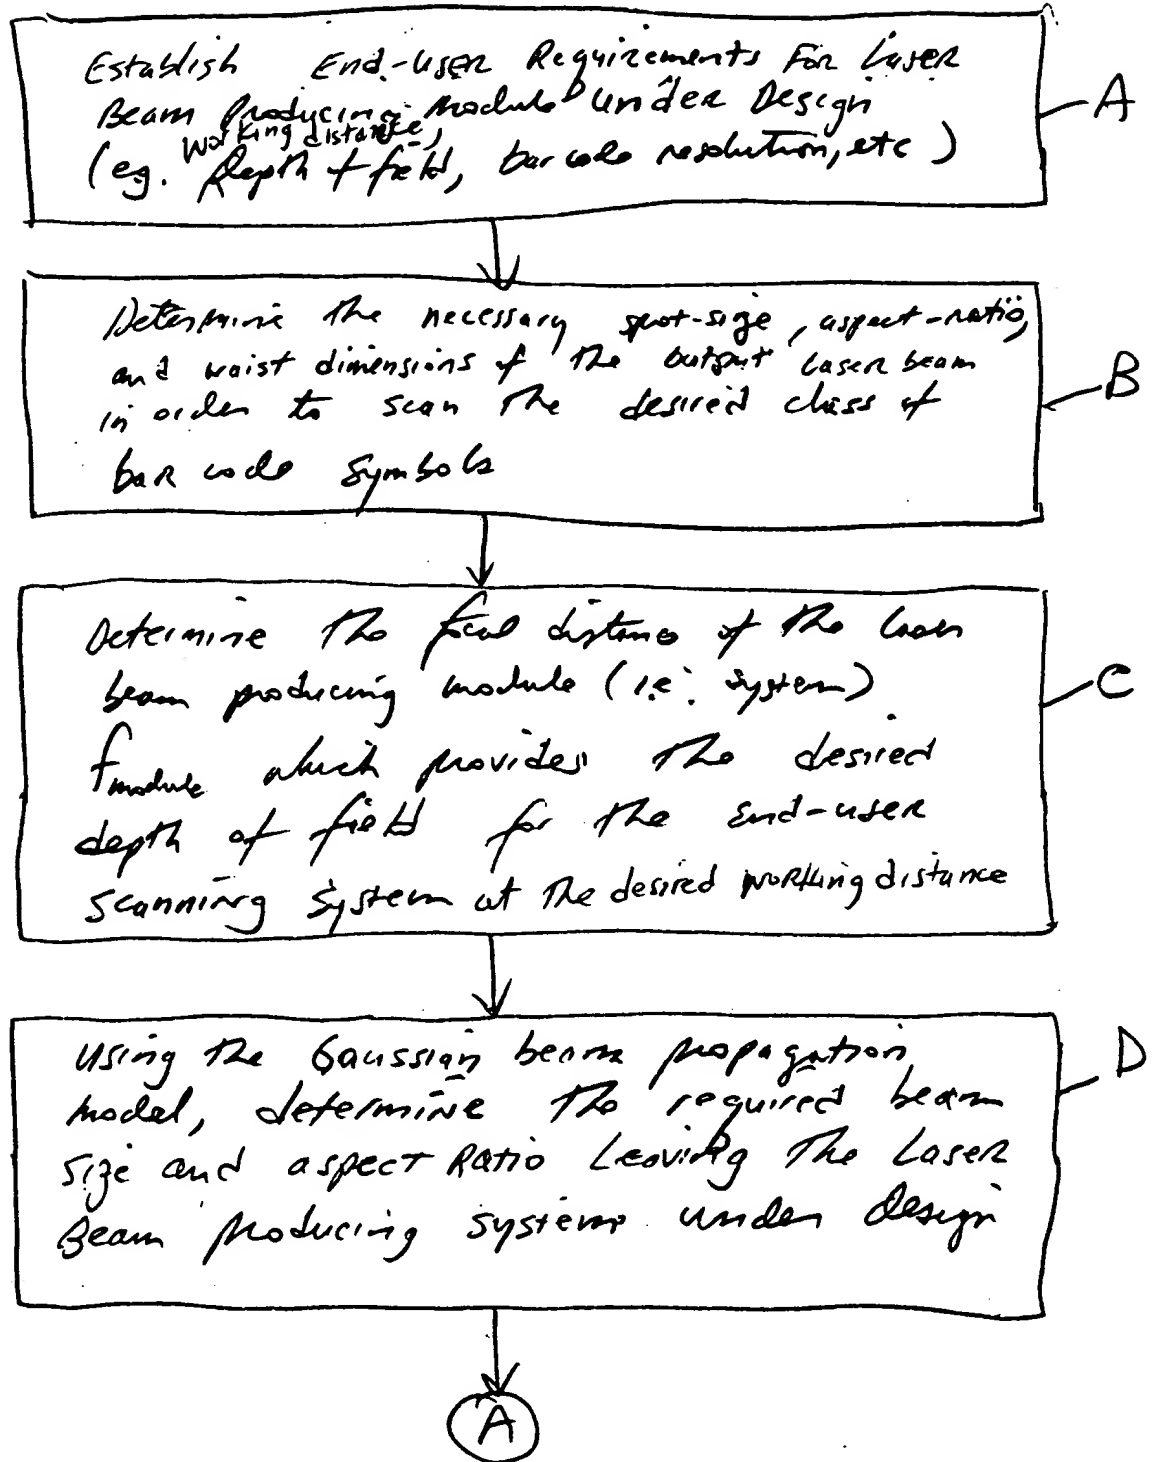 Establish End-User Requirements For Laser
Beam Producing Module Under Design
working distance,
(eg. Depth of field, bar code resolution, etc)
A
Determine the necessary spot-size, aspect-ratio,
and waist dimensions of the output laser beam
in order to scan the desired class of
bar code symbols
B
Determine the focal distance of the laser
beam producing module (i.e. system)
fmodule which provides the desired
depth of field for the end-user
scanning system at the desired working distance
C
Using the Gaussian beam propagation
model, determine the required beam
size and aspect Ratio Leaving the Laser
Beam producing system under design
D
A